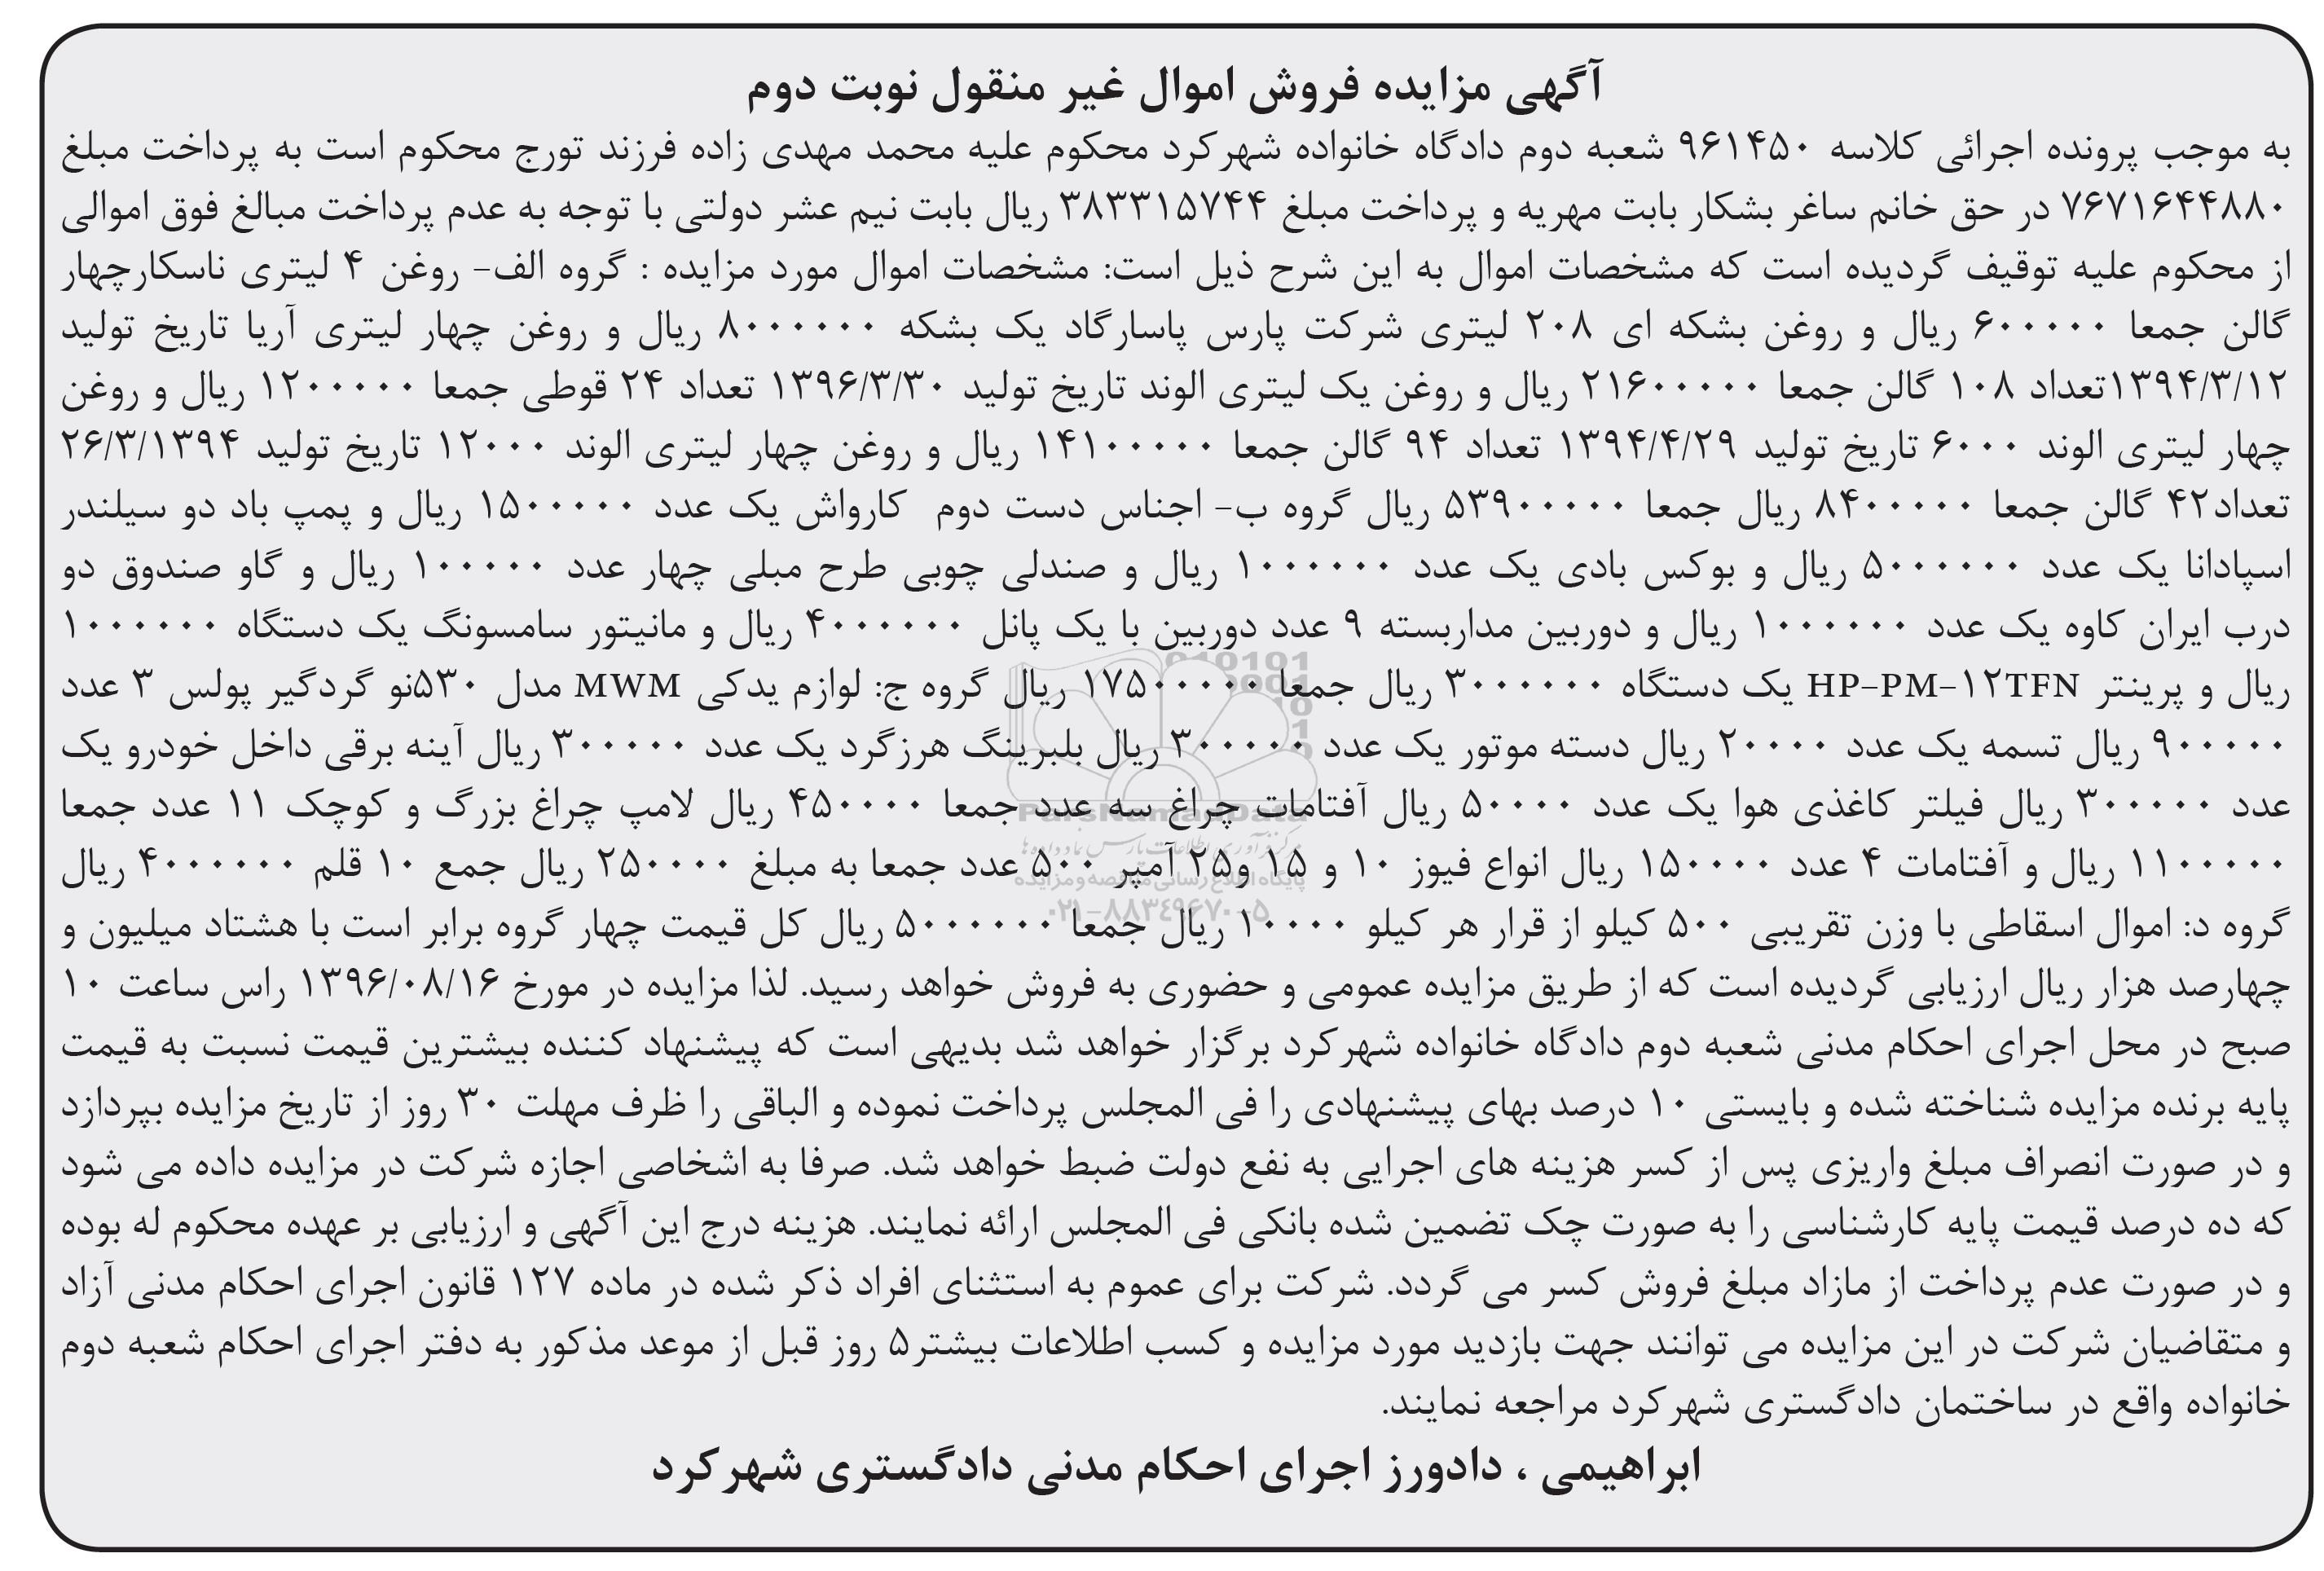 آگهی مزایده فروش اموال غیر منقول نوبت دوم
به موجب پرونده اجرائی کلاسه ۹۶۱۴۵۰ شعبه دوم دادگاه خانواده شهرکرد محکوم علیه محمد مهدی زاده فرزند تورج محکوم است به پرداخت مبلغ
۷۶۷۱۶۴۴۸۸۰ در حق خانم ساغر بشکار بابت مهریه و پرداخت مبلغ ۳۸۳۳۱۵۷۴۴ ریال بابت نیم عشر دولتی با توجه به عدم پرداخت مبالغ فوق اموالی
از محکوم علیه توقیف گردیده است که مشخصات اموال به این شرح ذیل است: مشخصات اموال مورد مزایده : گروه الف- روغن ۴ لیتری ناسکارچهار
گالن جمعا ۶۰۰۰۰۰ ریال و روغن بشکه ای ۲۰۸ لیتری شرکت پارس پاسارگاد یک بشکه ۸۰۰۰۰۰۰ ریال و روغن چهار لیتری آریا تاریخ تولید
۱۳۹۴/۳/۱۲تعداد ۱۰۸ گالن جمعا ۲۱۶۰۰۰۰۰ ریال و روغن یک لیتری الوند تاریخ تولید ۱۳۹۶/۳/۳۰ تعداد ۲۴ قوطی جمعا ۱۲۰۰۰۰۰ ریال و روغن
چهار لیتری الوند ۶۰۰۰ تاریخ تولید ۱۳۹۴/۴/۲۹ تعداد ۹۴ گالن جمعا ۱۴۱۰۰۰۰۰ ریال و روغن چهار لیتری الوند ۱۲۰۰۰ تاریخ تولید ۲۶/۳/۱۳۹۴
تعداد۴۲ گالن جمعا ۸۴۰۰۰۰۰ ریال جمعا ۵۳۹۰۰۰۰۰ ریال گروه ب- اجناس دست دوم کارواش یک عدد ۱۵۰۰۰۰۰ ریال و پمپ باد دو سیلندر
اسپادانا یک عدد ۵۰۰۰۰۰۰ ریال و بوکس بادی یک عدد ۱۰۰۰۰۰۰ ریال و صندلی چوبی طرح مبلی چهار عدد ۱۰۰۰۰۰ ریال و گاو صندوق دو
درب ایران کاوه یک عدد ۱۰۰۰۰۰۰ ریال و دوربین مداربسته ۹ عدد دوربین با یک پانل ۴۰۰۰۰۰۰ ریال و مانیتور سامسونگ یک دستگاه ۱۰۰۰۰۰۰
ریال و پرینتر HP-PM-۱۲TFN یک دستگاه ۳۰۰۰۰۰۰ ریال جمعا ۱۷۵۰۰۰۰۰ ریال گروه ج: لوازم یدکی MWM مدل ۵۳۰نو گردگیر پولس ۳ عدد
۹۰۰۰۰۰ ریال تسمه یک عدد ۲۰۰۰۰ ریال دسته موتور یک عدد ۳۰۰۰۰۰ ریال بلبرینگ هرزگرد یک عدد ۳۰۰۰۰۰ ریال آینه برقی داخل خودرو یک
عدد ۳۰۰۰۰۰ ریال فیلتر کاغذی هوا یک عدد ۵۰۰۰۰ ریال آفتامات چراغ سه عدد جمعا ۴۵۰۰۰۰ ریال لامپ چراغ بزرگ و کوچک ۱۱ عدد جمعا
۱۱۰۰۰۰۰ ریال و آفتامات ۴ عدد ۱۵۰۰۰۰ ریال انواع فیوز ۱۰ و ۱۵ و۲۵ آمپر ۵۰۰ عدد جمعا به مبلغ ۲۵۰۰۰۰ ریال جمع ۱۰ قلم ۴۰۰۰۰۰۰ ریال
گروه د: اموال اسقاطی با وزن تقریبی ۵۰۰ کیلو از قرار هر کیلو ۱۰۰۰۰ ریال جمعا ۵۰۰۰۰۰۰ ریال کل قیمت چهار گروه برابر است با هشتاد میلیون و
چهارصد هزار ریال ارزیابی گردیده است که از طریق مزایده عمومی و حضوری به فروش خواهد رسید. لذا مزایده در مورخ ۱۳۹۶/۰۸/۱۶ راس ساعت ۱۰
صبح در محل اجرای احکام مدنی شعبه دوم دادگاه خانواده شهرکرد برگزار خواهد شد بدیهی است که پیشنهاد کننده بیشترین قیمت نسبت به قیمت
پایه برنده مزایده شناخته شده و بایستی ۱۰ درصد بهای پیشنهادی را فی المجلس پرداخت نموده و الباقی را ظرف مهلت ۳۰ روز از تاریخ مزایده بپردازد
و در صورت انصراف مبلغ واریزی پس از کسر هزینه های اجرایی به نفع دولت ضبط خواهد شد. صرفا به اشخاصی اجازه شرکت در مزایده داده می شود
که ده درصد قیمت پایه کارشناسی را به صورت چک تضمین شده بانکی فی المجلس ارائه نمایند. هزینه درج این آگهی و ارزیابی بر عهده محکوم له بوده
و در صورت عدم پرداخت از مازاد مبلغ فروش کسر می گردد. شرکت برای عموم به استثنای افراد ذکر شده در ماده ۱۲۷ قانون اجرای احکام مدنی آزاد
و متقاضیان شرکت در این مزایده می توانند جهت بازدید مورد مزایده و کسب اطلاعات بیشتر۵ روز قبل از موعد مذکور به دفتر اجرای احکام شعبه دوم
خانواده واقع در ساختمان دادگستری شهرکرد مراجعه نمایند.
ابراهیمی ، دادورز اجرای احکام مدنی دادگستری شهرکرد
ParsNamadData
مرکز فرآوری اطلاعات پارس نماد داده ها
پایگاه اطلاع رسانی مناقصه و مزایده
۰۲۱-۸۸۳۴۹۶۷۰-۵